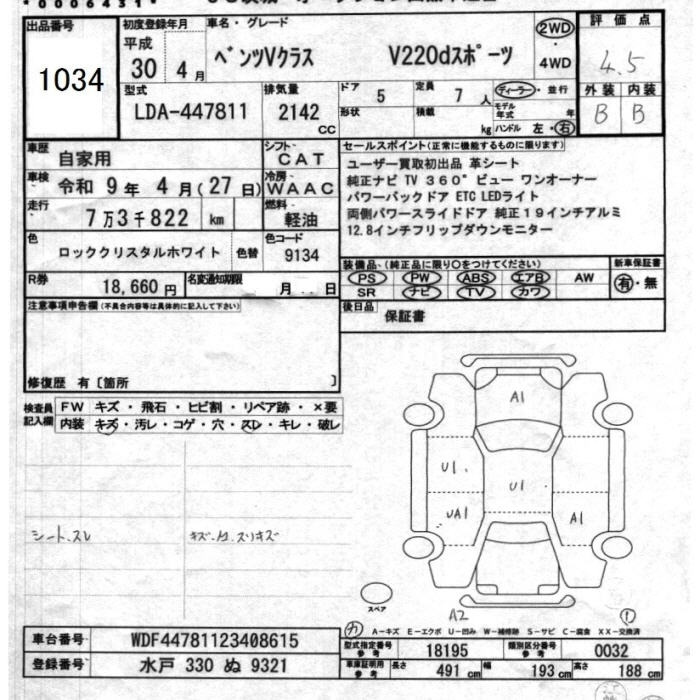 *0006431*
出品番号
1034
初度登録年月
平成
30 4月
車名・グレード
ベンツVクラス V220dスポーツ
2WD
4WD
評価点
4.5
外装 内装
B B
型式
LDA-447811
排気量
2142
cc
ドア
5
定員
7 人
形状
積載
kg
ディーラー・並行
モデル年式 年
ハンドル 左・右
車歴
自家用
シフト
CAT
車検
令和 9年 4月(27日)
冷房
WAAC
走行
7万3千822 km
燃料
軽油
色
ロッククリスタルホワイト
色替
色コード
9134
R券
18,660円
名変通知期限
月 日
セールスポイント(正常に機能するものに限ります)
ユーザー買取初出品 革シート
純正ナビ TV 360°ビュー ワンオーナー
パワーバックドア ETC LEDライト
両側パワースライドドア 純正19インチアルミ
12.8インチフリップダウンモニター
装備品(純正品に限り○をつけてください)
PS PW ABS エアB AW
SR ナビ TV カワ
新車保証書
有・無
後日品
保証書
注意事項申告欄(不具合内容等は具体的に記入して下さい)
修復歴 有〔箇所 〕
検査員記入欄
FW キズ・飛石・ヒビ割・リペア跡・×要
内装 キズ・汚レ・コゲ・穴・スレ・キレ・破レ
シートスレ
A1
U1
U1
UA1
A1
スペア
A2
1
カ
A−キズ E−エクボ U−凹み W−補修跡 S−サビ C−腐食 XX−交換済
車台番号
WDF44781123408615
登録番号
水戸 330 ぬ 9321
型式指定番号
参考
18195
類別区分番号
参考
0032
車庫証明用
参考
長さ 491 cm
幅 193 cm
高さ 188 cm